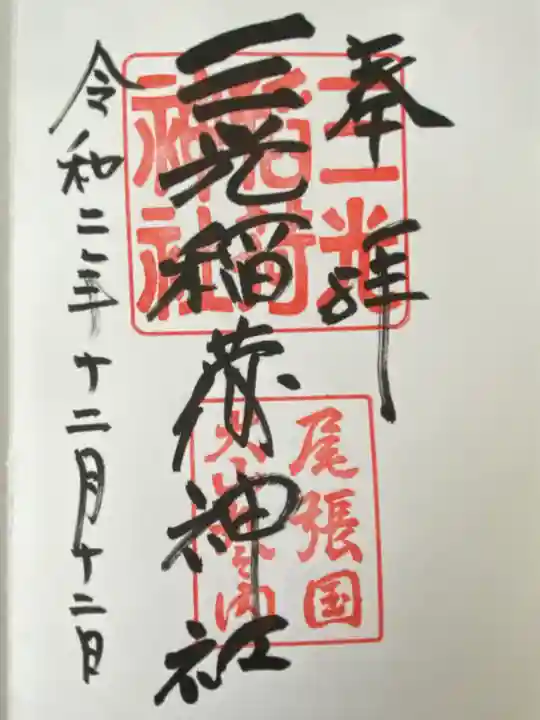 奉拝
三光稲荷神社
令和二年十二月十二日
三光
稲荷
神社
尾張国
犬山城内